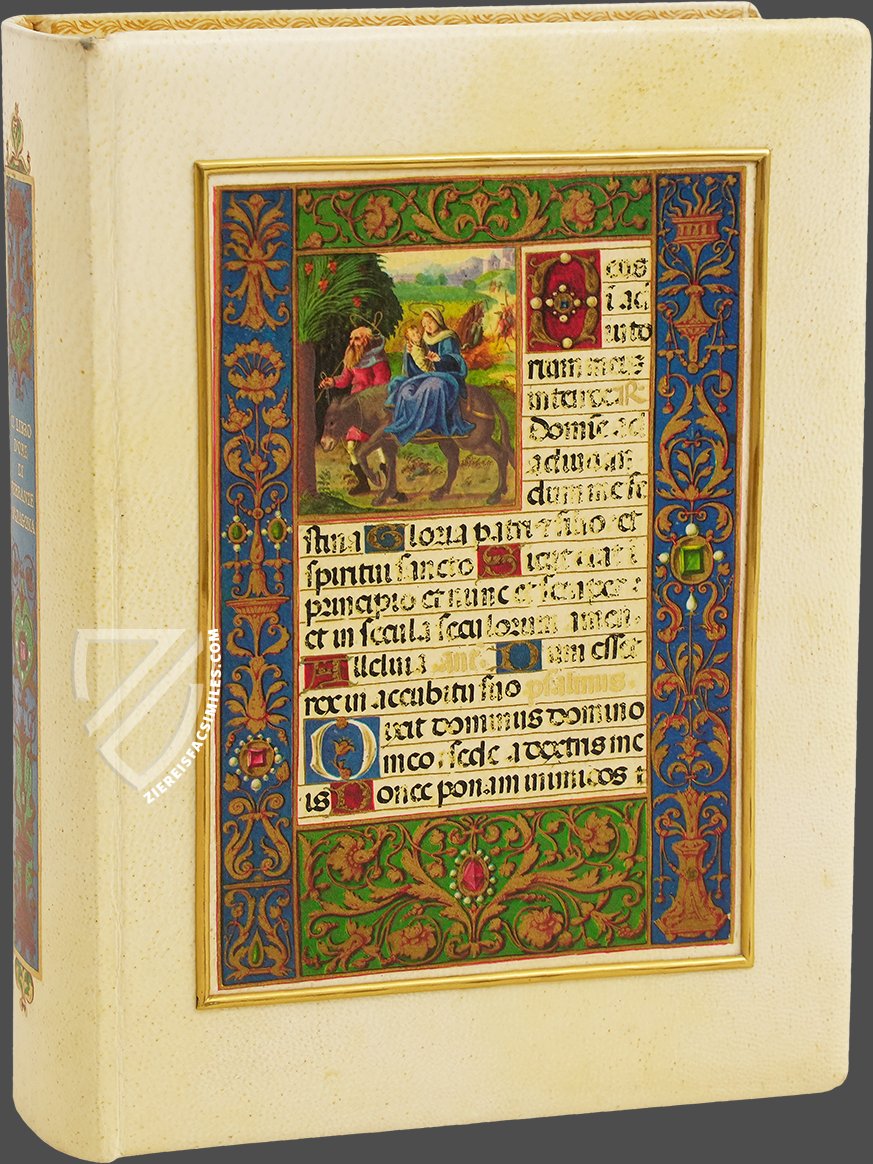 IL LIBRO
D'ORE
DI
FERRANTE
D'ARAGONA
Deus
i ad
iuto
rium meus
intende R
Domine ad
adiuvan
dum me fe
stina Gloria patri et filio et
spiritui sancto Sicut erat i
principio et nunc et semper:
et in secula seculorum amen.
Alleluia ant. Dum esset
rex in accubitu suo psalmus.
Dixit dominus domino
meo: sede a dextris me
is Donec ponam inimicos t
ZIEREISFACSIMILES.COM